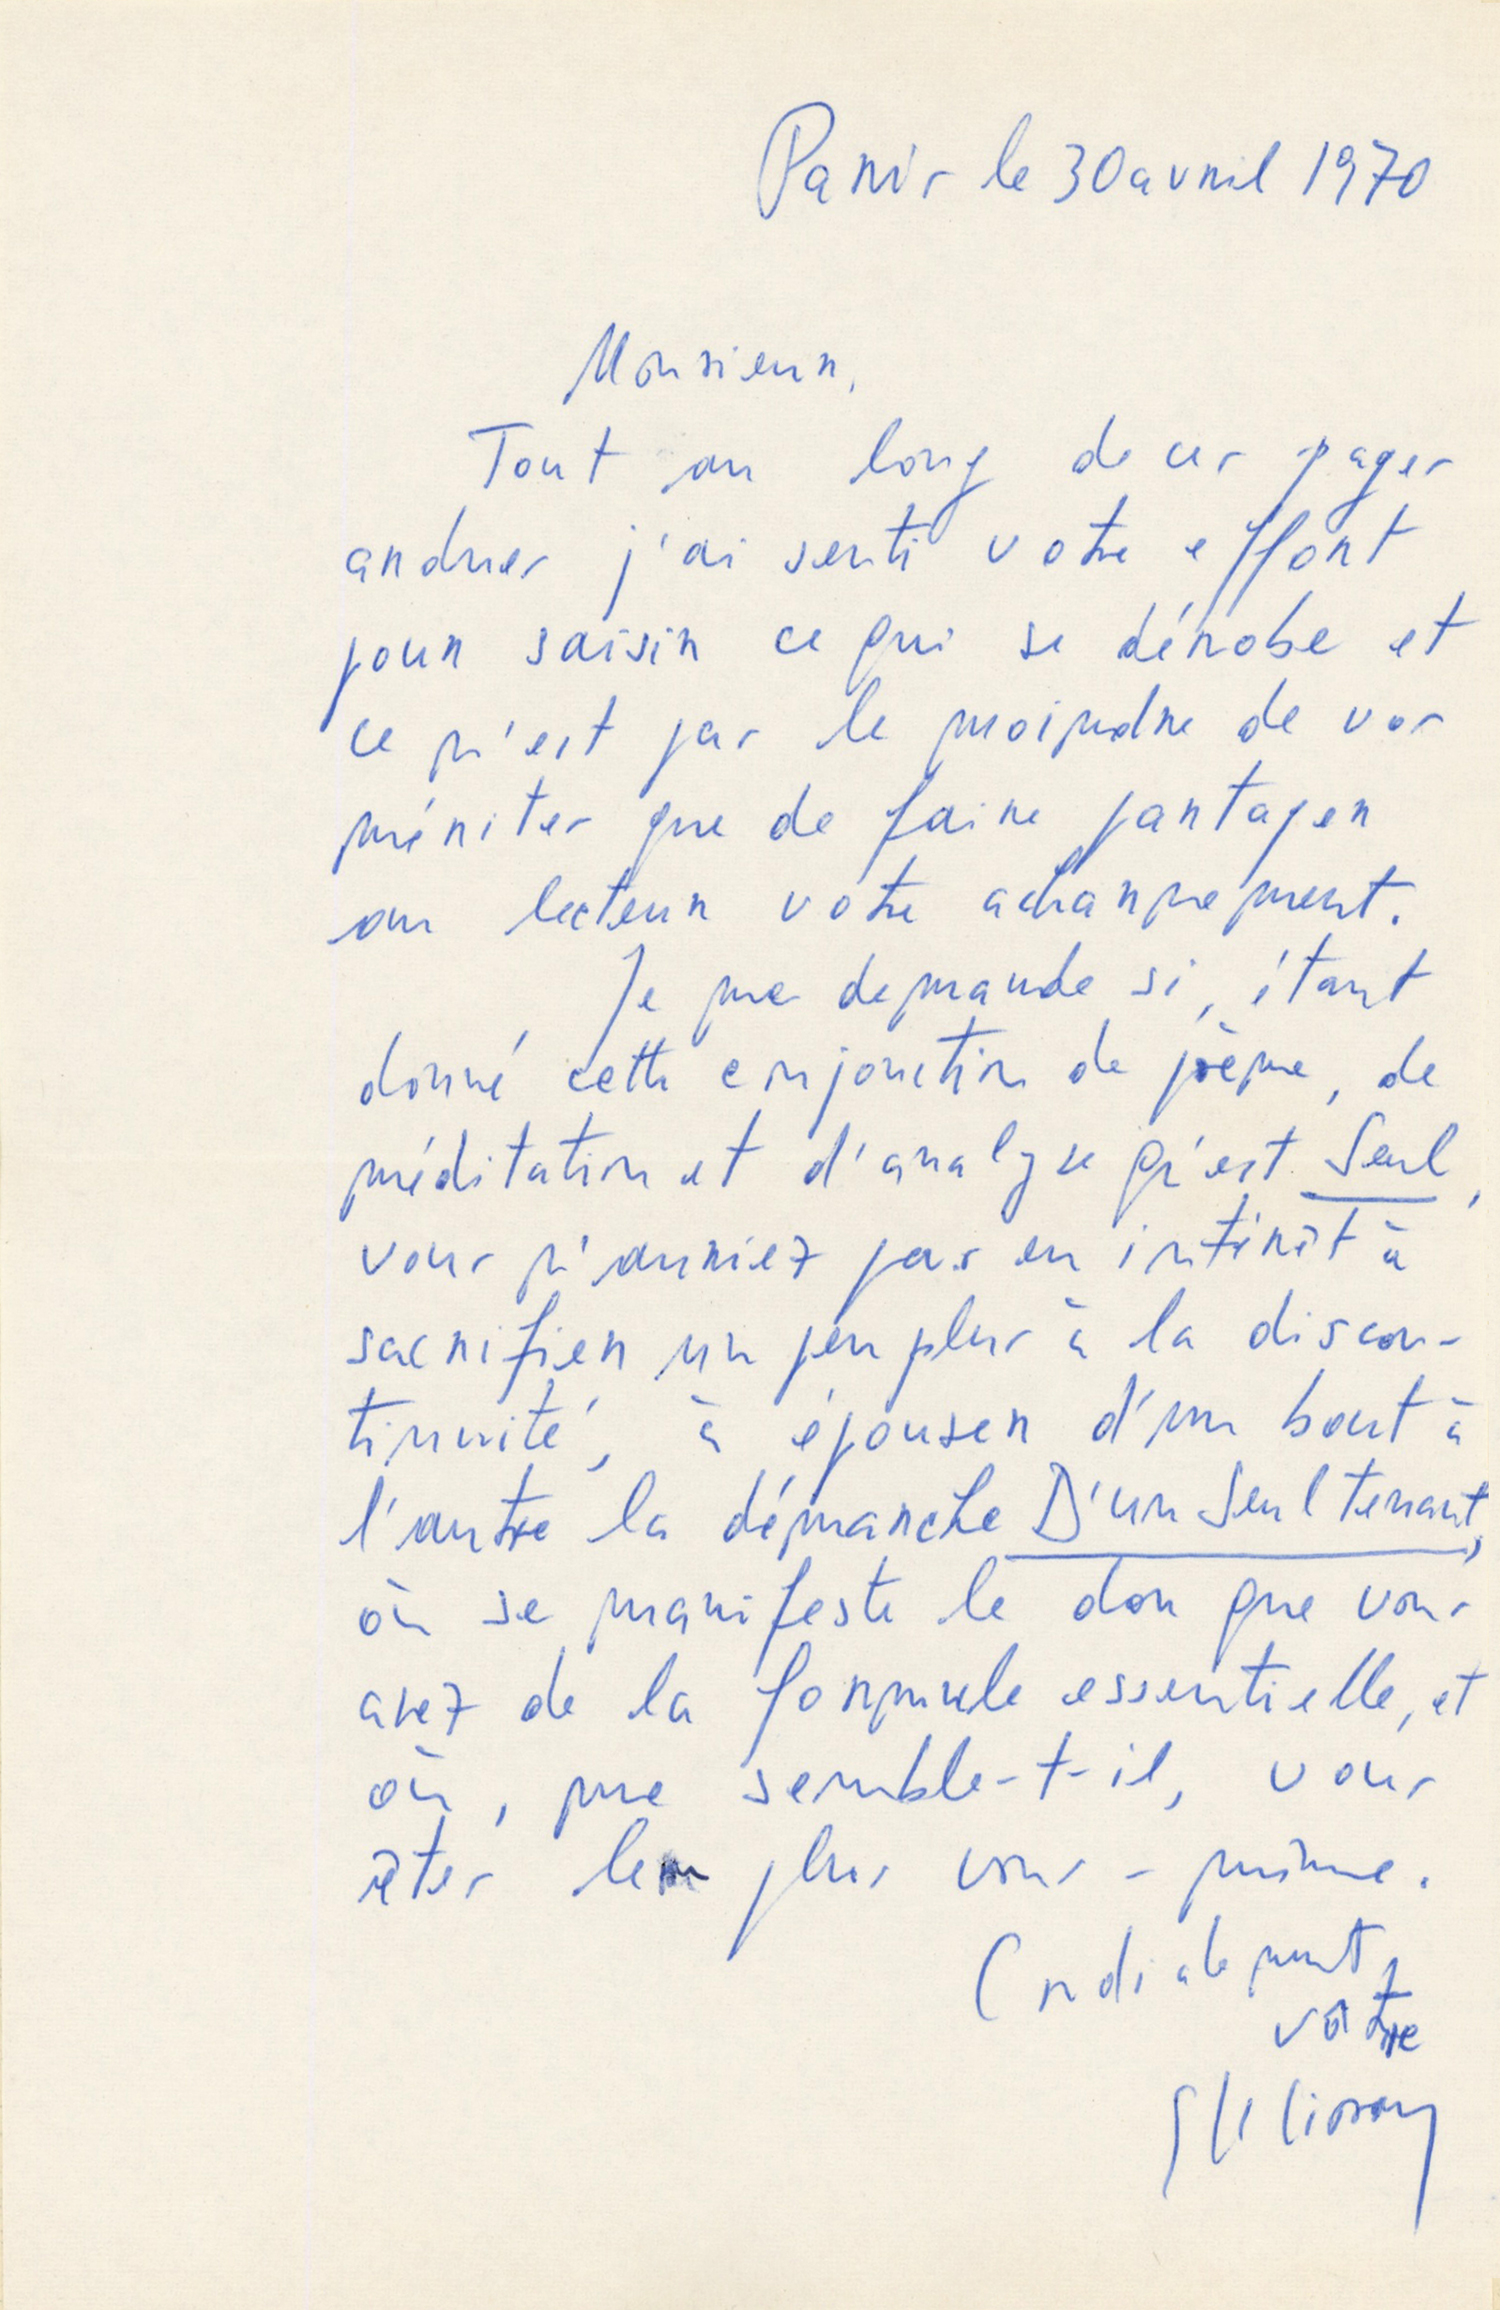 Paris le 30 avril 1970
Monsieur,
Tout au long de ces pages
ardues j'ai senti votre effort
pour saisir ce qui se dérobe et
ce n'est pas le moindre de vos
mérites que de faire partager
au lecteur votre acharnement.
Je me demande si, étant
donné cette conjonction de poème, de
méditation et d'analyse qu'est Seul,
vous n'auriez pas eu intérêt à
sacrifier un peu plus à la discon-
tinuité, à épouser d'un bout à
l'autre la démarche D'un Seul tenant,
où se manifeste le don que vous
avez de la formule essentielle, et
où, me semble-t-il, vous
êtes le plus vous-même.
Cordialement,
vôtre
EM Cioran